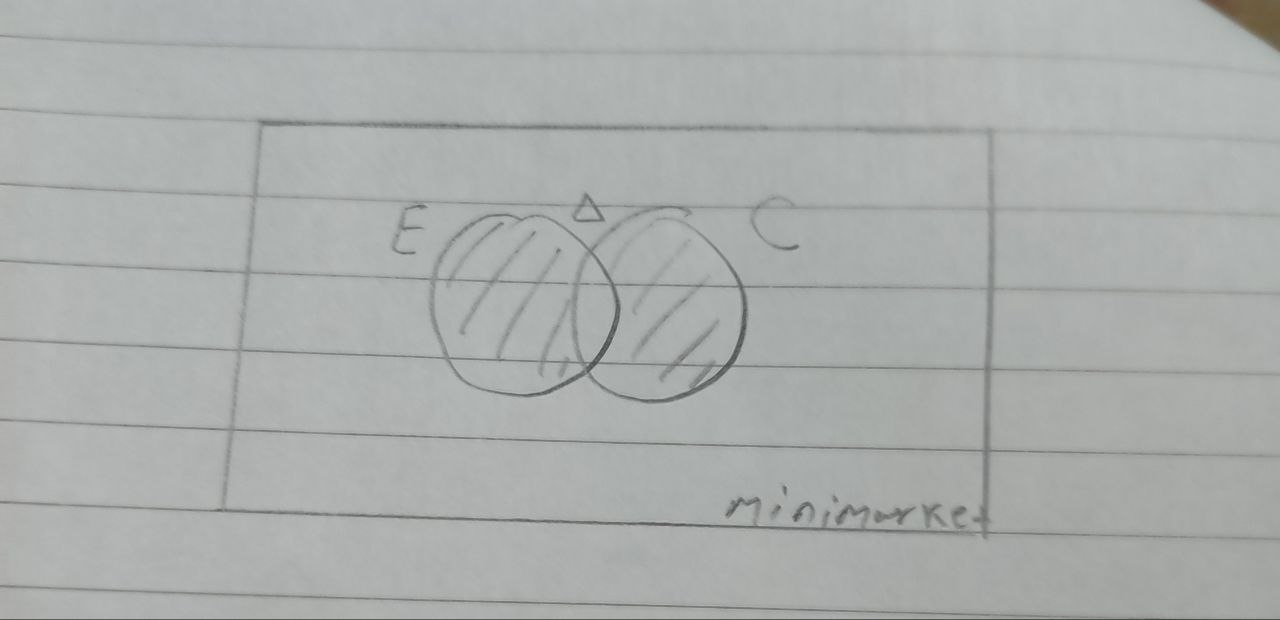 E Δ C
minimarket